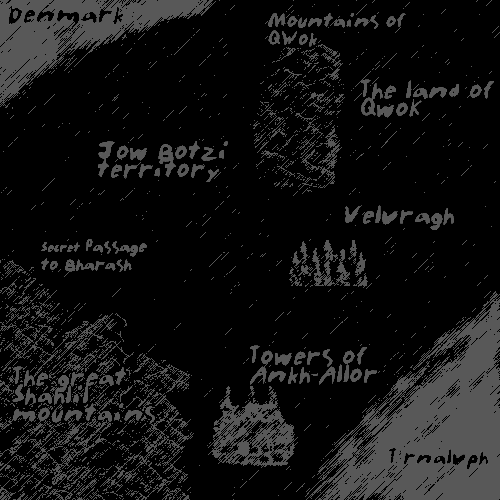 Denmark
Mountains of
QWok
The land of
Qwok
Jow Botzi
territory
Velvragh
Secret Passage
to Bharash
Towers of
Ankh-Allor
The great
Shanlil
mountains